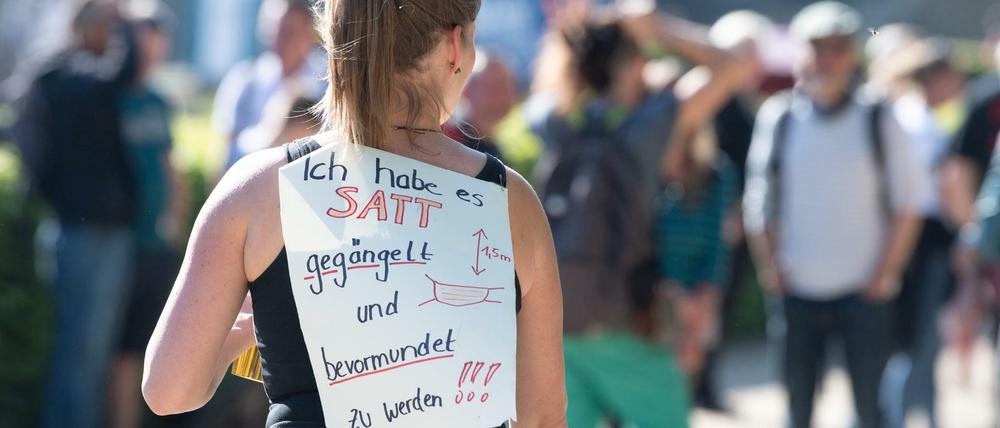 Ich habe es
SATT
gegängelt
1,5m
und
bevormundet
zu werden !!!